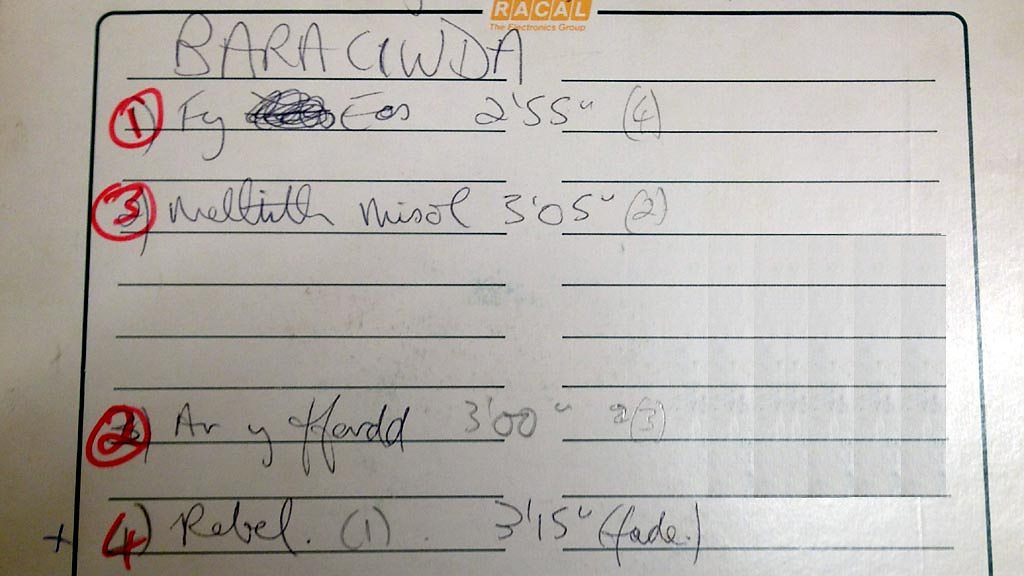 RACAL
The Electronics Group
BARACIWDA
1) Fy Eos 2'55" (4)
3) Melltith Misol 3'05" (2)
2) Ar y ffordd 3'00" 2(3)
+ 4) Rebel. (1). 3'15" (fade.)